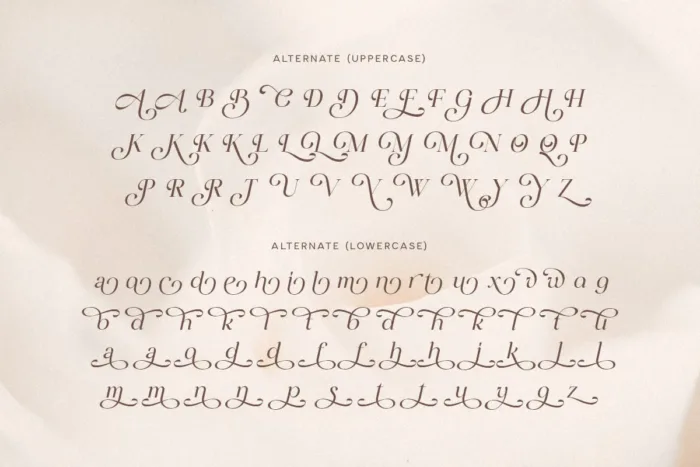 ALTERNATE (UPPERCASE)
A A B B C D D E E F G H H H
K K K K L L L M M M N O Q P
P R R J U V V W W Y Y Z
ALTERNATE (LOWERCASE)
a a c d e h i l m n r t u x v w a g
b d h k l t b d h k l t u
a a d d f f h h j k l l
m m n n p s t t u y g z